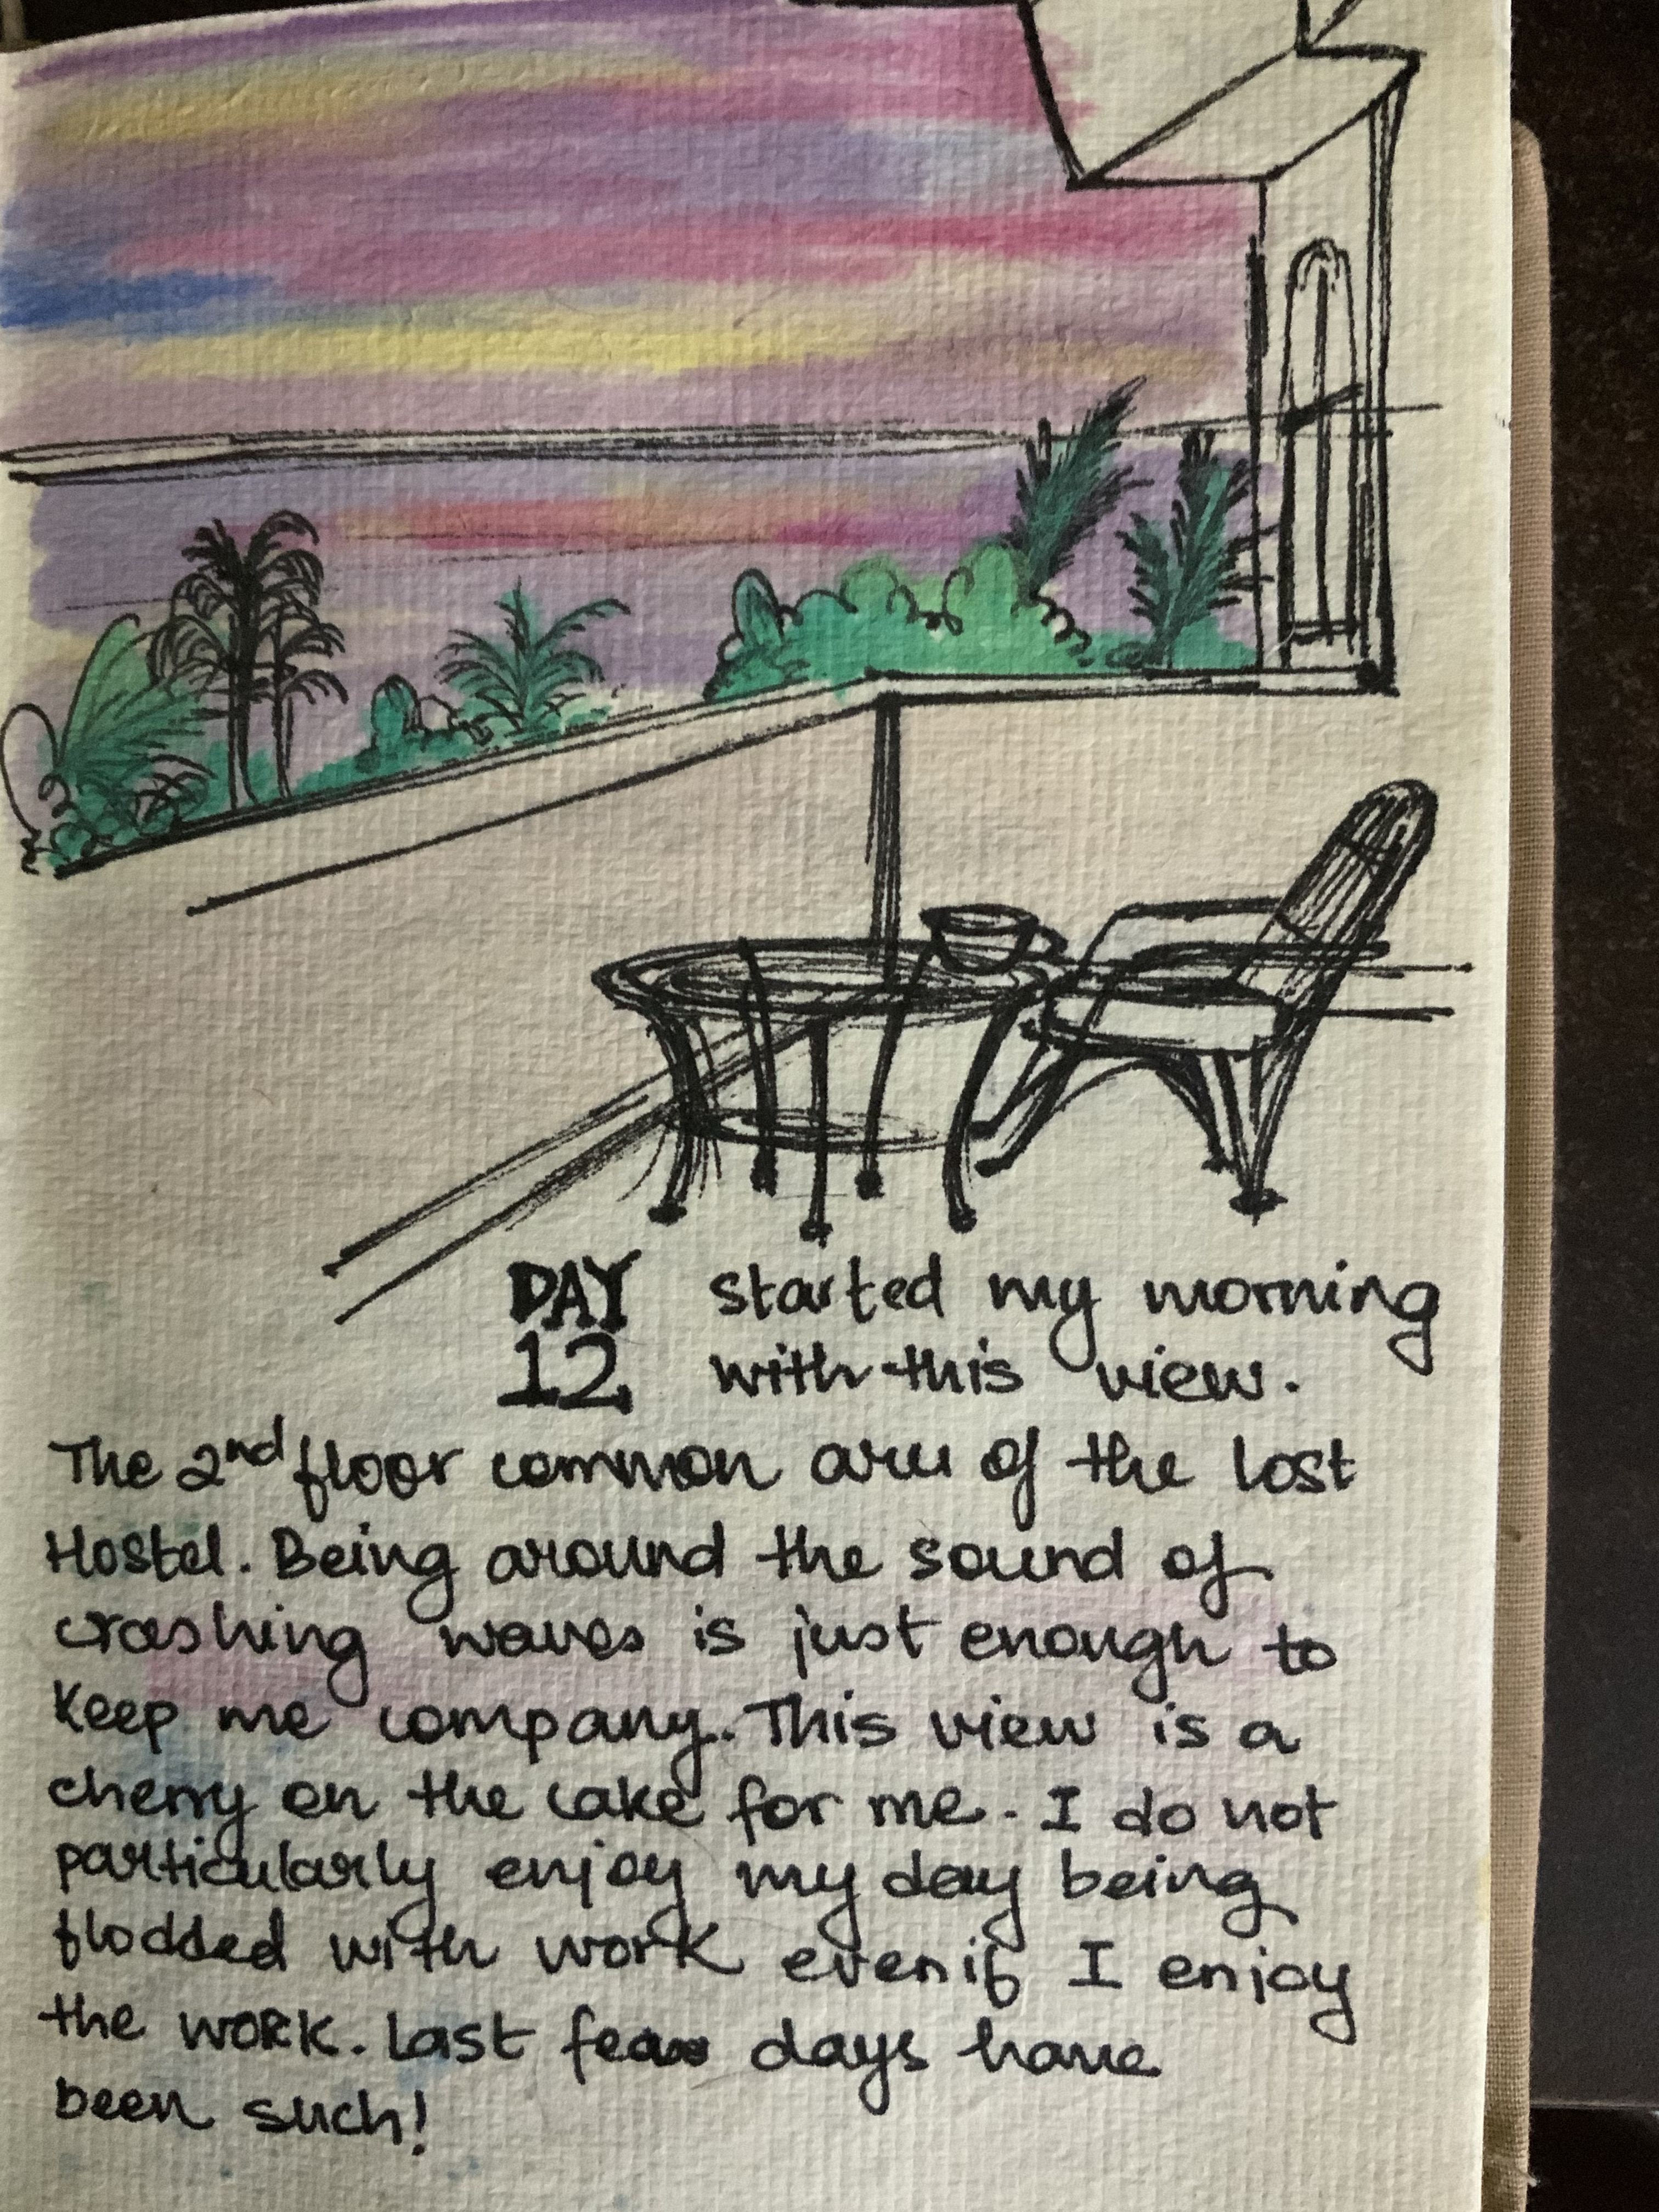 DAY started my morning
12 with this view.
The 2nd floor common area of the lost
Hostel. Being around the sound of
crashing waves is just enough to
keep me company. This view is a
cherry on the cake for me. I do not
particularly enjoy my day being
flodded with work even if I enjoy
the work. Last few days have
been such!